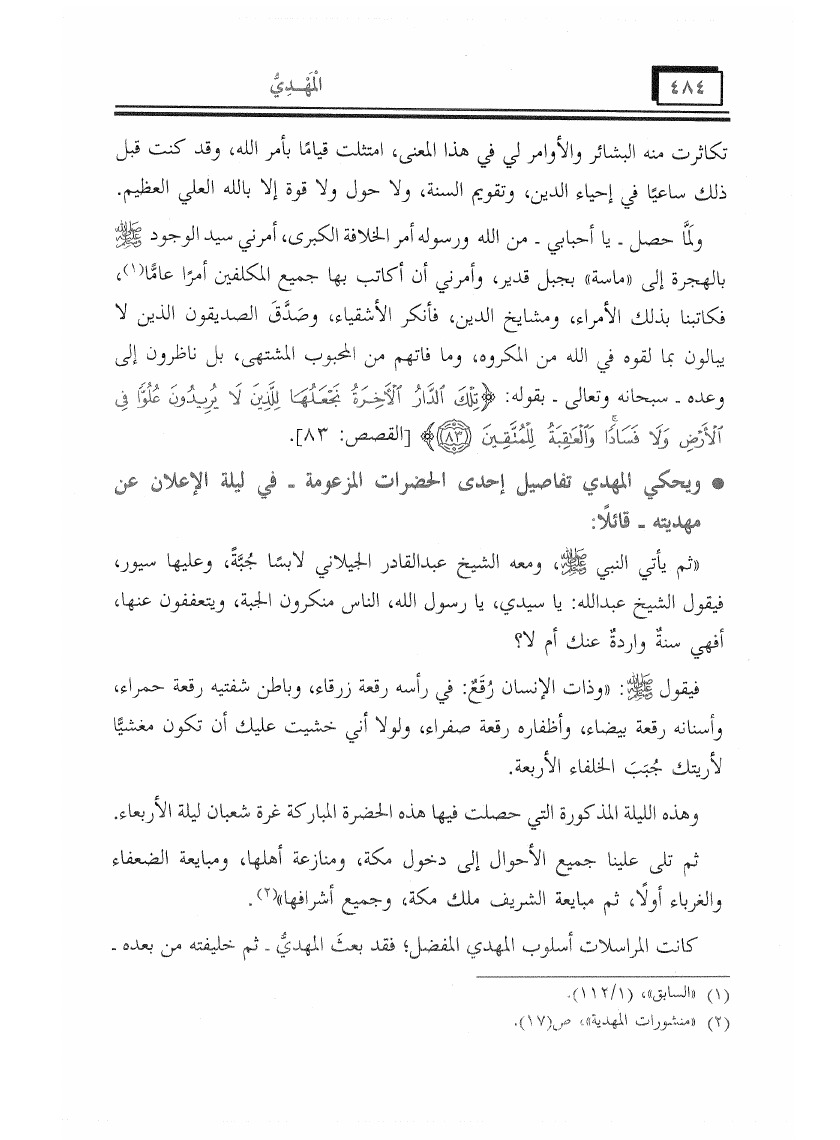 ٤٨٤
الْمَهْدِيُّ
تكاثرت منه البشائر والأوامر لي في هذا المعنى، امتثلت قيامًا بأمر الله، وقد كنت قبل
ذلك ساعيًا في إحياء الدين، وتقويم السنة، ولا حول ولا قوة إلا بالله العلي العظيم.
ولَمَّا حصل ـ يا أحبابي ـ من الله ورسوله أمر الخلافة الكبرى، أمرني سيد الوجود ﷺ
بالهجرة إلى «ماسة» بجبل قدير، وأمرني أن أكاتب بها جميع المكلفين أمرًا عامًّا(١)،
فكاتبنا بذلك الأمراء، ومشايخ الدين، فأنكر الأشقياء، وصَدَّقَ الصديقون الذين لا
يبالون بما لقوه في الله من المكروه، وما فاتهم من المحبوب المشتهى، بل ناظرون إلى
وعده ـ سبحانه وتعالى ـ بقوله: ﴿تِلْكَ ٱلدَّارُ ٱلْأَخِرَةُ نَجْعَلُهَا لِلَّذِينَ لَا يُرِيدُونَ عُلُوًّا فِى
ٱلْأَرْضِ وَلَا فَسَادًۚا وَٱلْعَٰقِبَةُ لِلْمُتَّقِينَ ۝٨٣﴾ [القصص: ٨٣].
● ويحكي المهدي تفاصيل إحدى الحضرات المزعومة ـ في ليلة الإعلان عن
مهديته ـ قائلًا:
«ثم يأتي النبي ﷺ، ومعه الشيخ عبدالقادر الجيلاني لابسًا جُبَّةً، وعليها سيور،
فيقول الشيخ عبدالله: يا سيدي، يا رسول الله، الناس منكرون الجبة، ويتعففون عنها،
أفهي سنةٌ واردةٌ عنك أم لا؟
فيقول ﷺ: «وذات الإنسان رُقَعٌ: في رأسه رقعة زرقاء، وباطن شفتيه رقعة حمراء،
وأسنانه رقعة بيضاء، وأظفاره رقعة صفراء، ولولا أني خشيت عليك أن تكون مغشيًّا
لأريتك جُبَبَ الخلفاء الأربعة.
وهذه الليلة المذكورة التي حصلت فيها هذه الحضرة المباركة غرة شعبان ليلة الأربعاء.
ثم تلى علينا جميع الأحوال إلى دخول مكة، ومنازعة أهلها، ومبايعة الضعفاء
والغرباء أولًا، ثم مبايعة الشريف ملك مكة، وجميع أشرافها»(٢).
كانت المراسلات أسلوب المهدي المفضل؛ فقد بعثَ المهديُّ ـ ثم خليفته من بعده ـ
(١) «السابق»، (١/١١٢).
(٢) «منشورات المهدية»، ص(١٧).